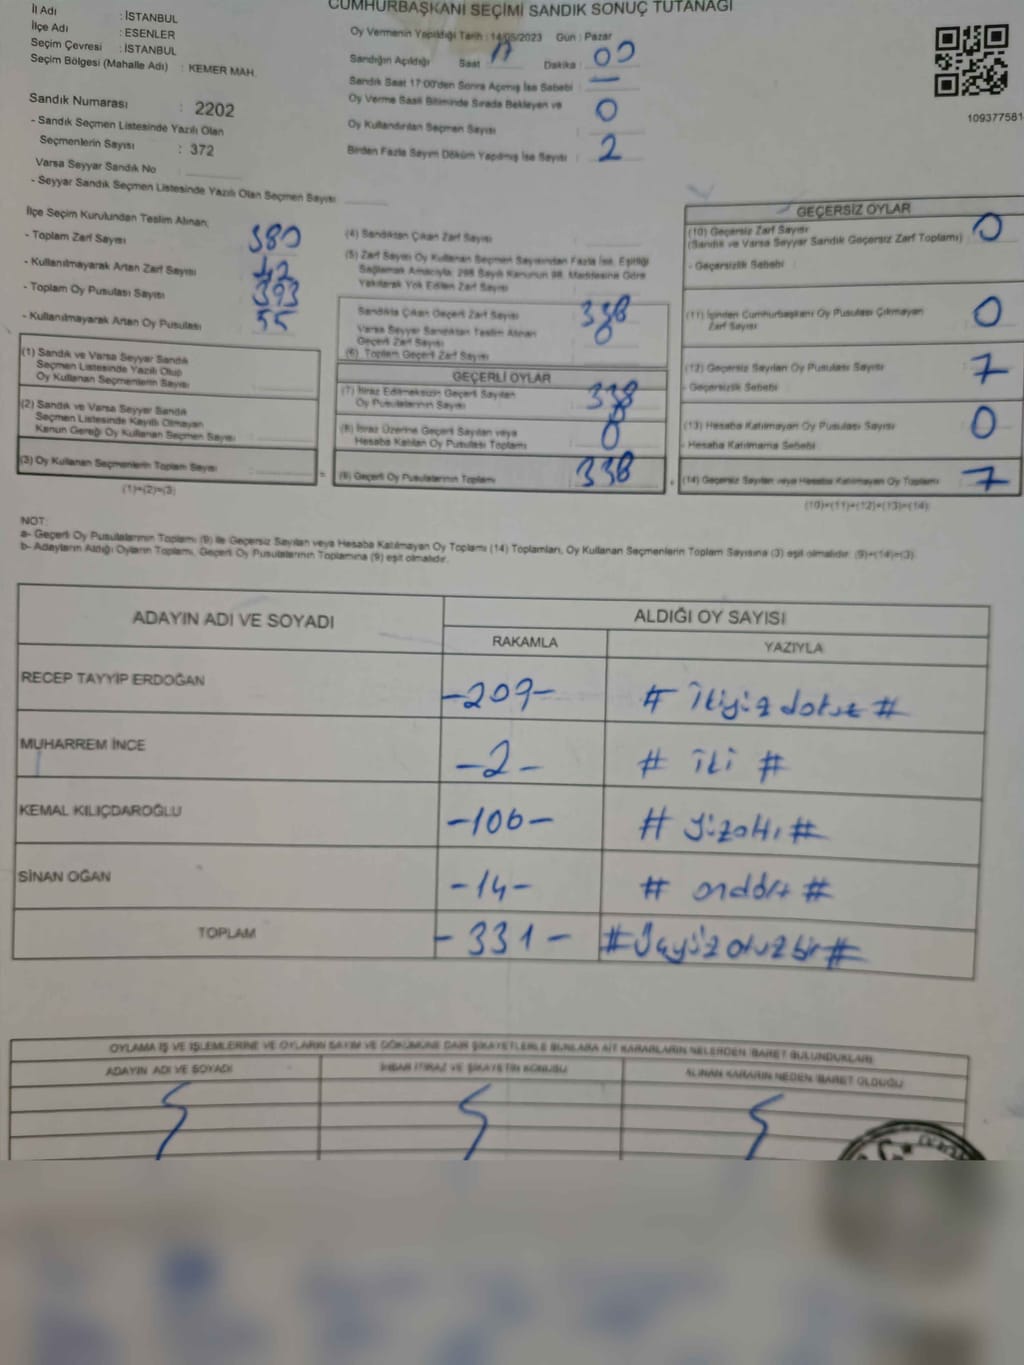 CUMHURBAŞKANI SEÇİMİ SANDIK SONUÇ TUTANAĞI
İl Adı : İSTANBUL
İlçe Adı : ESENLER
Seçim Çevresi : İSTANBUL
Seçim Bölgesi (Mahalle Adı) : KEMER MAH.
Sandık Numarası : 2202
- Sandık Seçmen Listesinde Yazılı Olan
Seçmenlerin Sayısı : 372
Varsa Seyyar Sandık No
- Seyyar Sandık Seçmen Listesinde Yazılı Olan Seçmen Sayısı
Oy Vermenin Yapıldığı Tarih : 14/05/2023 Gün : Pazar
Sandığın Açıldığı Saat : 17 Dakika : 00
Sandık Saat 17:00'den Sonra Açılmış İse Sebebi : —
Oy Verme Saati Bitiminde Sırada Bekleyen ve
Oy Kullandırılan Seçmen Sayısı : 0
Birden Fazla Sayım Döküm Yapılmış İse Sayısı : 2
109377581
İlçe Seçim Kurulundan Teslim Alınan;
- Toplam Zarf Sayısı : 380
- Kullanılmayarak Artan Zarf Sayısı : 42
- Toplam Oy Pusulası Sayısı : 393
- Kullanılmayarak Artan Oy Pusulası : 55
(1) Sandık ve Varsa Seyyar Sandık
Seçmen Listesinde Yazılı Olup
Oy Kullanan Seçmenlerin Sayısı
(2) Sandık ve Varsa Seyyar Sandık
Seçmen Listesinde Kayıtlı Olmayan
Kanun Gereği Oy Kullanan Seçmen Sayısı :
(3) Oy Kullanan Seçmenlerin Toplam Sayısı :
(1)+(2)=(3)
(4) Sandıktan Çıkan Zarf Sayısı
(5) Zarf Sayısı Oy Kullanan Seçmen Sayısından Fazla İse, Eşitliği
Sağlamak Amacıyla; 298 Sayılı Kanunun 98. Maddesine Göre
Yakılarak Yok Edilen Zarf Sayısı
Sandıkta Çıkan Geçerli Zarf Sayısı : 338
Varsa Seyyar Sandıktan Teslim Alınan
Geçerli Zarf Sayısı : 0
(6) Toplam Geçerli Zarf Sayısı
GEÇERLİ OYLAR
(7) İtiraz Edilmeksizin Geçerli Sayılan
Oy Pusulalarının Sayısı : 338
(8) İtiraz Üzerine Geçerli Sayılan veya
Hesaba Katılan Oy Pusulası Toplamı : 0
(9) Geçerli Oy Pusulalarının Toplamı : 338
GEÇERSİZ OYLAR
(10) Geçersiz Zarf Sayısı
(Sandık ve Varsa Seyyar Sandık Geçersiz Zarf Toplamı) : 0
- Geçersizlik Sebebi :
(11) İçinden Cumhurbaşkanı Oy Pusulası Çıkmayan
Zarf Sayısı : 0
(12) Geçersiz Sayılan Oy Pusulası Sayısı : 7
- Geçersizlik Sebebi :
(13) Hesaba Katılmayan Oy Pusulası Sayısı : 0
- Hesaba Katılmama Sebebi :
(14) Geçersiz Sayılan veya Hesaba Katılmayan Oy Toplamı : 7
(10)+(11)+(12)+(13)=(14)
NOT:
a- Geçerli Oy Pusulalarının Toplamı (9) ile Geçersiz Sayılan veya Hesaba Katılmayan Oy Toplamı (14) Toplamları, Oy Kullanan Seçmenlerin Toplam Sayısına (3) eşit olmalıdır. (9)+(14)=(3)
b- Adayların Aldığı Oyların Toplamı, Geçerli Oy Pusulalarının Toplamına (9) eşit olmalıdır.
ADAYIN ADI VE SOYADI ALDIĞI OY SAYISI
RAKAMLA YAZIYLA
RECEP TAYYİP ERDOĞAN -209- # İkiyüz dokuz #
MUHARREM İNCE -2- # iki #
KEMAL KILIÇDAROĞLU -106- # yüzaltı #
SİNAN OĞAN -14- # ondört #
TOPLAM -331- # Üçyüz otuz bir #
OYLAMA İŞ VE İŞLEMLERİNE VE OYLARIN SAYIM VE DÖKÜMÜNE DAİR ŞİKAYETLERLE BUNLARA AİT KARARLARIN NELERDEN İBARET BULUNDUKLARI
ADAYIN ADI VE SOYADI İHBAR İTİRAZ VE ŞİKAYETİN KONUSU ALINAN KARARIN NEDEN İBARET OLDUĞU